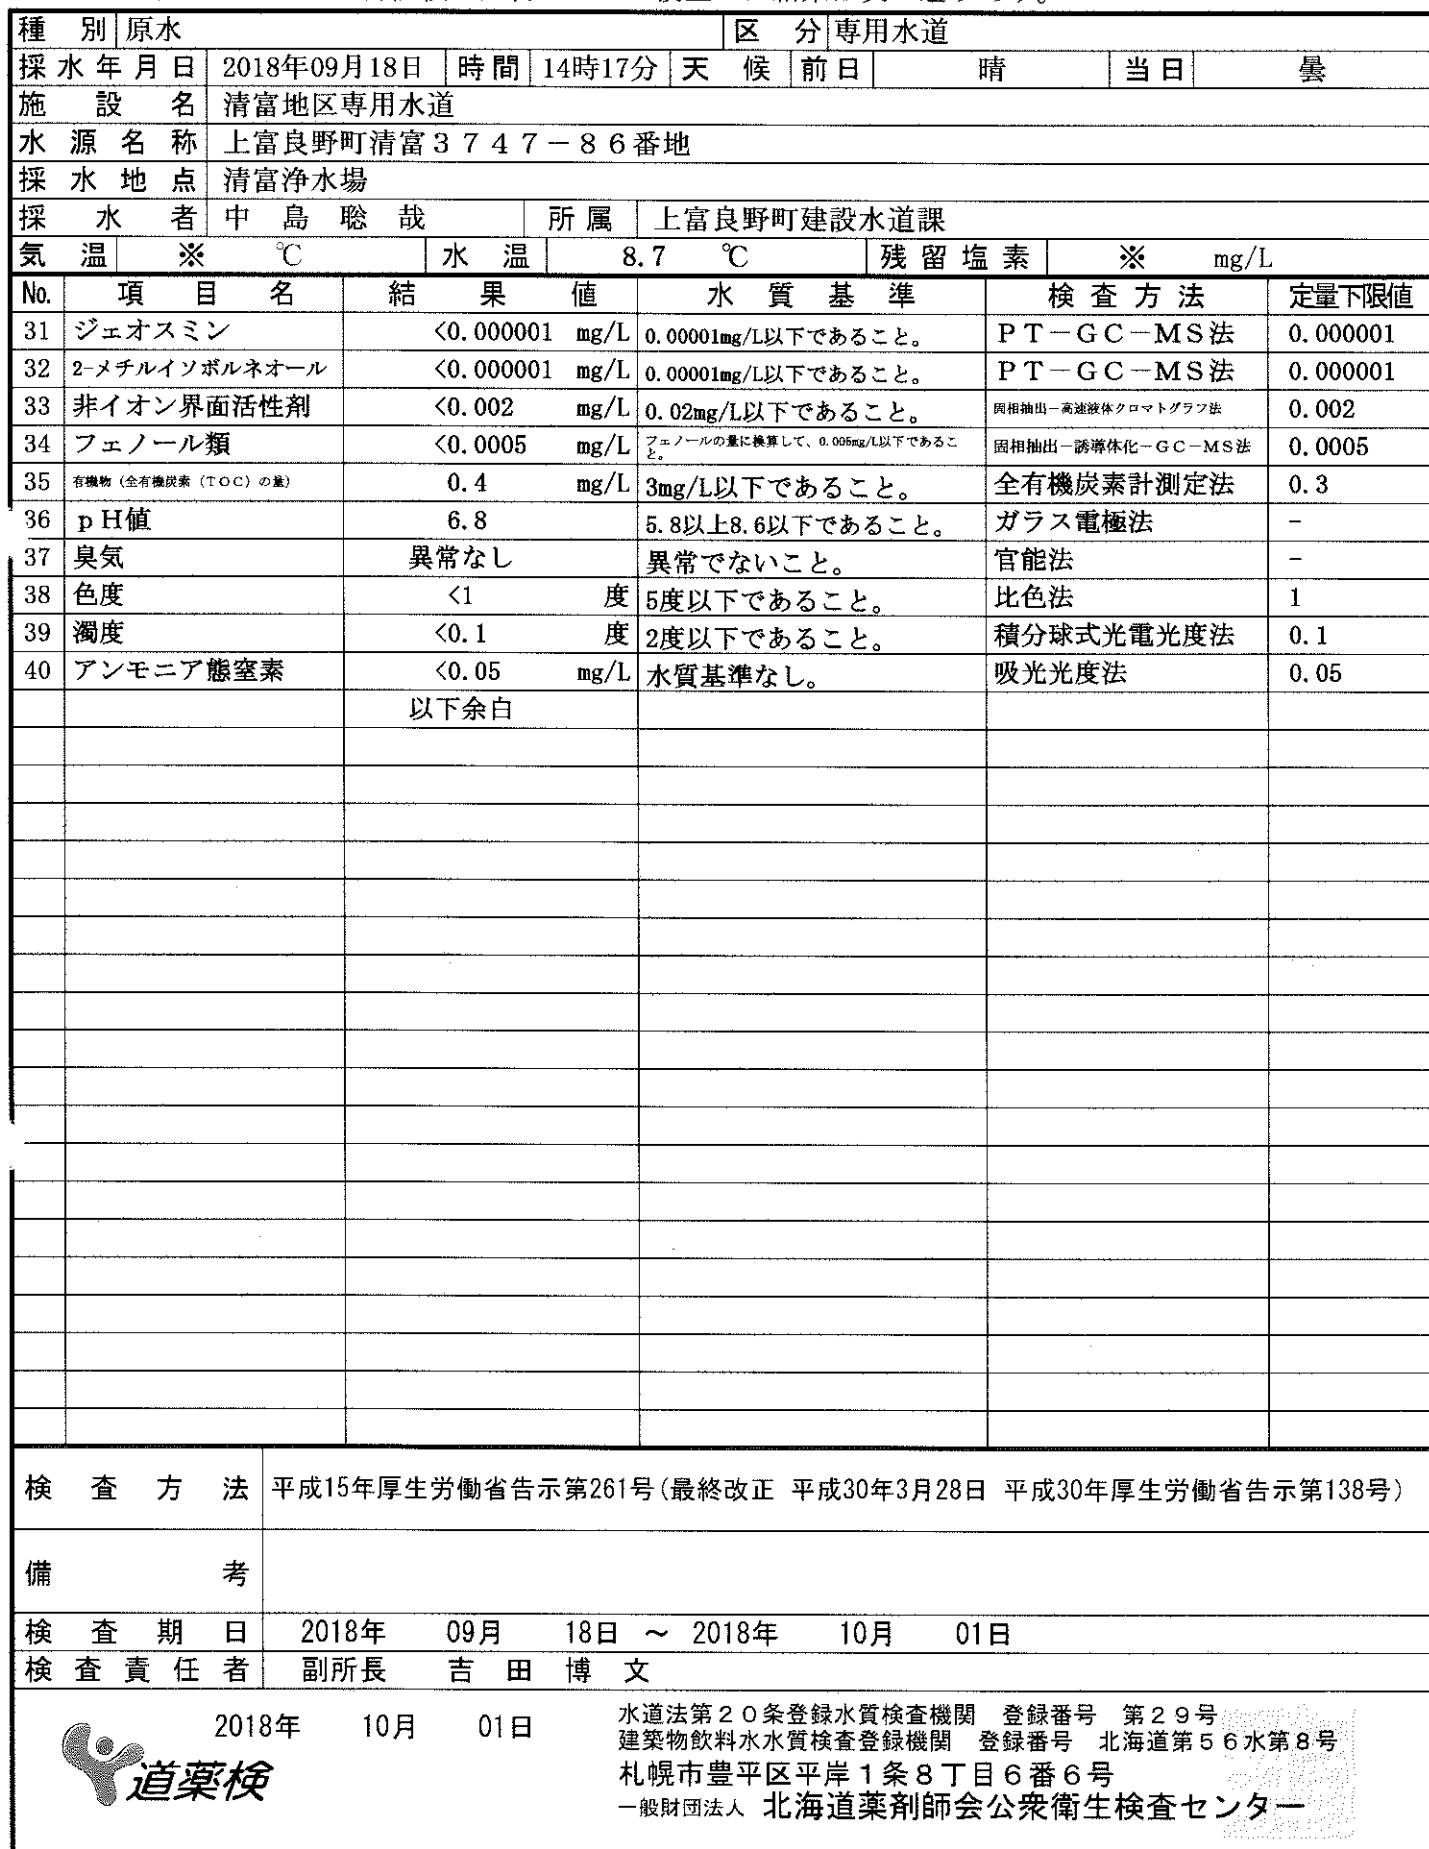 種別 原水 区分 専用水道
採水年月日 2018年09月18日 時間 14時17分 天候 前日 晴 当日 曇
施設名 清富地区専用水道
水源名称 上富良野町清富3747-86番地
採水地点 清富浄水場
採水者 中島聡哉 所属 上富良野町建設水道課
気温 ※ ℃ 水温 8.7 ℃ 残留塩素 ※ mg/L
No. 項目名 結果値 水質基準 検査方法 定量下限値
31 ジェオスミン <0.000001 mg/L 0.00001mg/L以下であること。 PT-GC-MS法 0.000001
32 2-メチルイソボルネオール <0.000001 mg/L 0.00001mg/L以下であること。 PT-GC-MS法 0.000001
33 非イオン界面活性剤 <0.002 mg/L 0.02mg/L以下であること。 固相抽出-高速液体クロマトグラフ法 0.002
34 フェノール類 <0.0005 mg/L フェノールの量に換算して、0.005mg/L以下であること。 固相抽出-誘導体化-GC-MS法 0.0005
35 有機物(全有機炭素(TOC)の量) 0.4 mg/L 3mg/L以下であること。 全有機炭素計測定法 0.3
36 pH値 6.8 5.8以上8.6以下であること。 ガラス電極法 -
37 臭気 異常なし 異常でないこと。 官能法 -
38 色度 <1 度 5度以下であること。 比色法 1
39 濁度 <0.1 度 2度以下であること。 積分球式光電光度法 0.1
40 アンモニア態窒素 <0.05 mg/L 水質基準なし。 吸光光度法 0.05
以下余白
検査方法 平成15年厚生労働省告示第261号(最終改正 平成30年3月28日 平成30年厚生労働省告示第138号)
備考
検査期日 2018年 09月 18日 ~ 2018年 10月 01日
検査責任者 副所長 吉田博文
2018年 10月 01日
道薬検
水道法第20条登録水質検査機関 登録番号 第29号
建築物飲料水水質検査登録機関 登録番号 北海道第56水第8号
札幌市豊平区平岸1条8丁目6番6号
一般財団法人 北海道薬剤師会公衆衛生検査センター